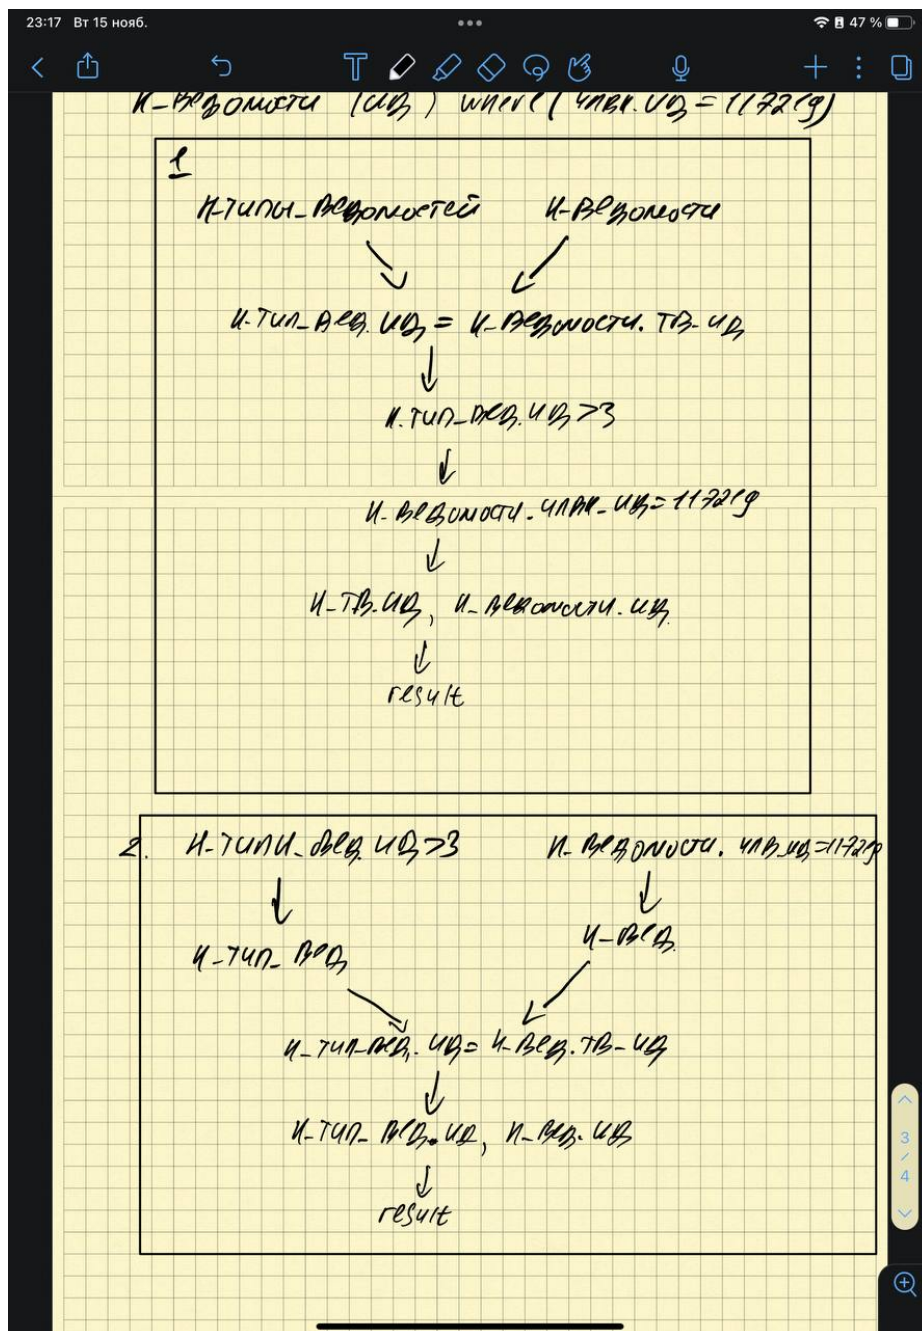 23:17 Вт 15 нояб. 47 %
Н_Ведомости (ИД) where (члвк.ИД = 117219)
1
Н_типы_Ведомостей Н_Ведомости
Н_тип_Вед.ИД = Н_Ведомости.ТВ_ИД
Н_тип_Вед.ИД >3
Н_Ведомости.члвк_ИД=117219
Н_ТВ.ИД, Н_Ведомости.ИД
result
2. Н_типи_Вед.ИД >3 Н_Ведомости.члв.ИД=117219
Н_тип_Вед Н_Вед.
Н_тип_Вед.ИД= Н_Вед.ТВ_ИД
Н_тип_Вед.ИД, Н_Вед.ИД
result
3
/
4